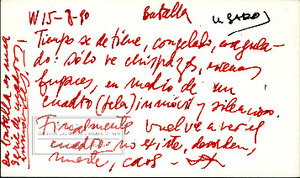 W15-2-90 Batalla USADO
Tiempo se detiene, congelado, coagula-
do: sólo ve chispazos, escenas
fugaces, en medio de un
cuadro (tela) inmóvil y silencioso.
Finalmente vuelve a ver el
cuadro: no existe, desorden,
muerte, caos.
La batalla es una